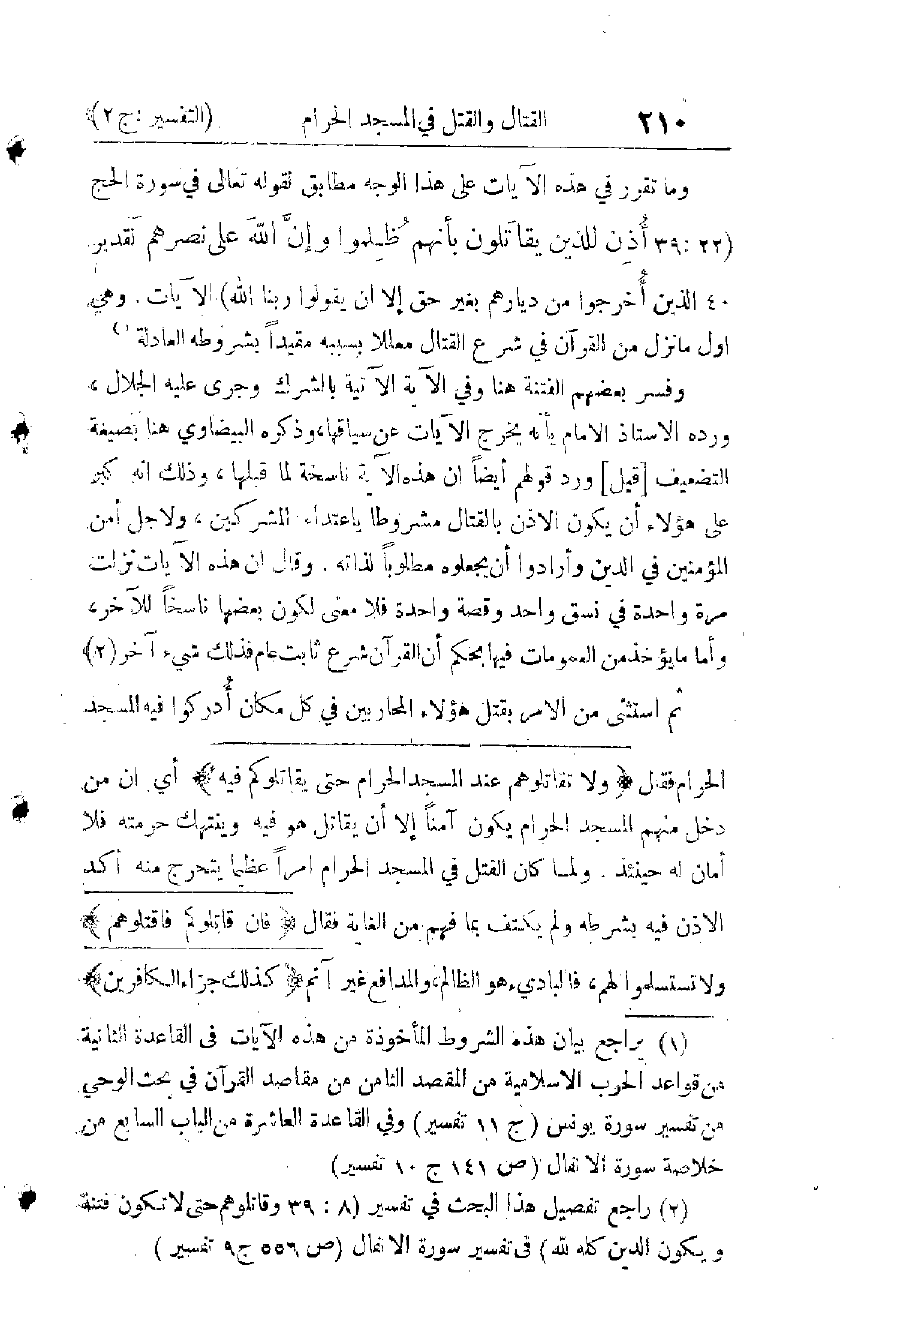 ٢١٠ القتال والقتل في المسجد الحرام (التفسير : ج ٢)
وما تقرر في هذه الآيات على هذا الوجه مطابق لقوله تعالى في سورة الحج
(٢٢ : ٣٩ أُذن للذين يقاتلون بأنهم ظُلموا وإنَّ اللهَ على نصرهم لقدير
٤٠ الذين أُخرجوا من ديارهم بغير حق إلا ان يقولوا ربنا الله) الآيات . وهي
اول مانزل من القرآن في شرع القتال معللا بسببه مقيداً بشروطه العادلة (١
وفسر بعضهم الفتنة هنا وفي الآية الآتية بالشرك وجرى عليه الجلال ،
ورده الاستاذ الامام بأنه يخرج الآيات عن سياقها، وذكره البيضاوي هنا بصيغة
التضعيف [قيل] ورد قولهم أيضاً ان هذه الآية ناسخة لما قبلها ، وذلك انه كبر
على هؤلاء أن يكون الاذن بالقتال مشروطا باعتداء المشركين ، ولاجل أمن
المؤمنين في الدين وأرادوا أن يجعلوه مطلوباً لذاته . وقال ان هذه الآيات نزلت
مرة واحدة في نسق واحد وقصة واحدة فلا معنى لكون بعضها ناسخاً للآخر،
وأما مايؤخذ من العمومات فيها بحكم أن القرآن شرع ثابت عام فذلك شيء آخر (٢)
ثم استثنى من الامر بقتل هؤلاء المحاربين في كل مكان أُدركوا فيه المسجد
الحرام فقال ﴿ ولا تقاتلوهم عند المسجد الحرام حتى يقاتلوكم فيه ﴾ أي ان من
دخل منهم المسجد الحرام يكون آمناً إلا أن يقاتل هو فيه وينتهك حرمته فلا
أمان له حينئذ . ولما كان القتل في المسجد الحرام امراً عظيما يتحرج منه أكد
الاذن فيه بشرطه ولم يكتف بما فهم من الغاية فقال ﴿ فان قاتلوكم فاقتلوهم ﴾
ولا تستسلموا لهم، فالبادىء هو الظالم، والمدافع غير آثم ﴿ كذلك جزاء الكافرين ﴾
(١) يراجع بيان هذه الشروط المأخوذة من هذه الآيات فى القاعدة الثانية
من قواعد الحرب الاسلامية من المقصد الثامن من مقاصد القرآن في بحث الوحي
من تفسير سورة يونس (ج ١١ تفسير) وفي القاعدة العاشرة من الباب السابع من
خلاصة سورة الانفال (ص ١٤١ ج ١٠ تفسير)
(٢) راجع تفصيل هذا البحث في تفسير (٨ : ٣٩ وقاتلوهم حتى لاتكون فتنة
ويكون الدين كله لله) فى تفسير سورة الانفال (ص ٥٥٦ ج ٩ تفسير )